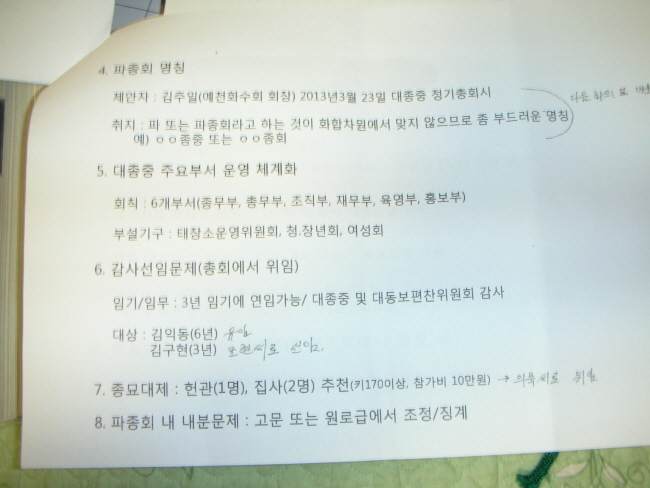 4. 파종회 명칭
제안자 : 김주일(예천화수회 회장) 2013년3월 23일 대종중 정기총회시
취지 : 파 또는 파종회라고 하는 것이 화합차원에서 맞지 않으므로 좀 부드러운 명칭
예) ㅇㅇ종중 또는 ㅇㅇ종회
다음 회의로
5. 대종중 주요부서 운영 체계화
회칙 : 6개부서(종무부, 총무부, 조직부, 재무부, 육영부, 홍보부)
부설기구 : 태장소운영위원회, 청.장년회, 여성회
6. 감사선임문제(총회에서 위임)
임기/임무 : 3년 임기에 연임가능/ 대종중 및 대동보편찬위원회 감사
대상 : 김익동(6년) 유임
김구현(3년) 선임.
7. 종묘대제 : 헌관(1명), 집사(2명) 추천(키170이상, 참가비 10만원) → 위임
8. 파종회 내 내분문제 : 고문 또는 원로급에서 조정/징계